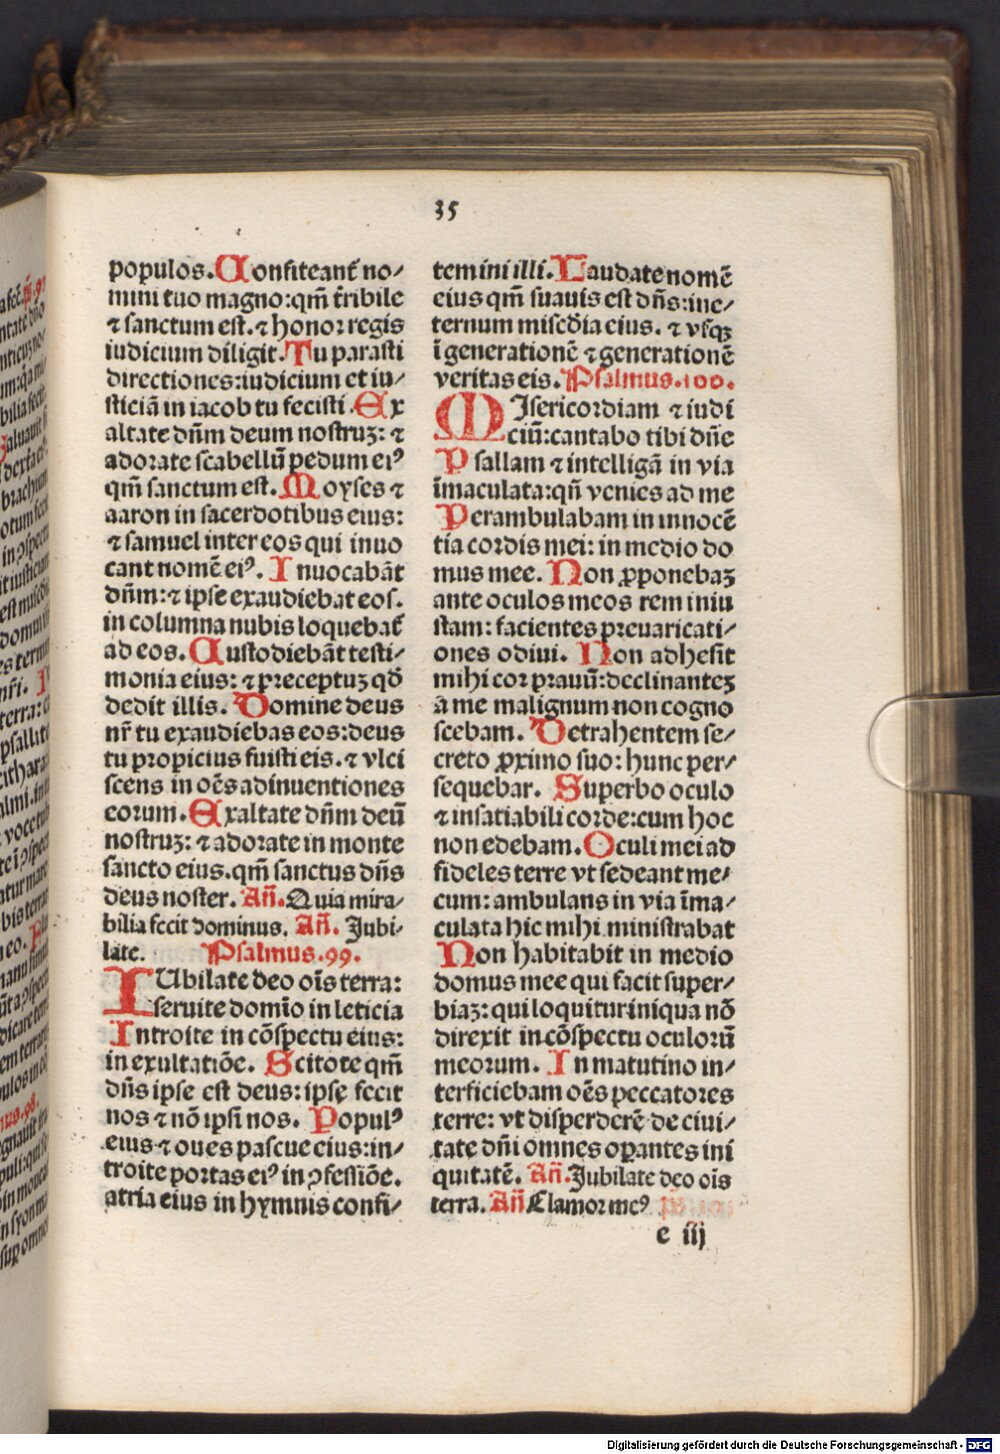 35
populos. Confiteant᷑ no⸗
mini tuo magno: qm̄ t̄ribile
⁊ sanctum est. ⁊ honor regis
iudicium diligit. Tu parasti
directiones: iudicium et iu⸗
sticiā in iacob tu fecisti. Ex
altate dn̄m deum nostruꝫ: ⁊
adorate scabellū pedum eiꝰ
qm̄ sanctum est. Moyses ⁊
aaron in sacerdotibus eius:
⁊ samuel inter eos qui inuo
cant nomē eiꝰ. Inuocabāt
dn̄m: ⁊ ipse exaudiebat eos.
in columna nubis loquebat᷑
ad eos. Custodiebāt testi⸗
monia eius: ⁊ preceptuꝫ qḋ
dedit illis. Domine deus
nr̄ tu exaudiebas eos: deus
tu propicius fuisti eis. ⁊ vlci
scens in oēs adinuentiones
eorum. Exaltate dn̄m deū
nostruꝫ: ⁊ adorate in monte
sancto eius. qm̄ sanctus dn̄s
deus noster. Añ. Quia mira⸗
bilia fecit dominus. Añ. Jubi⸗
late. Psalmus .99.
IUbilate deo oīs terra:
seruite domīo in leticia
Introite in cōspectu eius:
in exultatiōe. Scitote qm̄
dn̄s ipse est deus: ipse fecit
nos ⁊ nō ipsi nos. Populꝰ
eius ⁊ oues pascue eius: in⸗
troite portas eiꝰ in ꝯfessiōe.
atria eius in hymnis confi⸗
temini illi. Laudate nomē
eius qm̄ suauis est dn̄s: in e⸗
ternum misc̄dia eius. ⁊ vsqꝫ
ī generationē ⁊ generationē
veritas eis. Psalmus .100.
MIsericordiam ⁊ iudi
ciū: cantabo tibi dn̄e
Psallam ⁊ intelligā in via
īmaculata: qn̄ venies ad me
Perambulabam in innocē
tia cordis mei: in medio do
mus mee. Non ꝓponebaꝫ
ante oculos meos rem iniu
stam: facientes preuaricati⸗
ones odiui. Non adhesit
mihi cor prauū: declinanteꝫ
a me malignum non cogno
scebam. Detrahentem se⸗
creto ꝓximo suo: hunc per⸗
sequebar. Superbo oculo
⁊ insatiabili corde: cum hoc
non edebam. Oculi mei ad
fideles terre vt sedeant me⸗
cum: ambulans in via īma⸗
culata hic mihi ministrabat
Non habitabit in medio
domus mee qui facit super⸗
biaꝫ: qui loquitur iniqua nō
direxit in cōspectu oculorū
meorum. In matutino in⸗
terficiebam oēs peccatores
terre: vt disperderē de ciui⸗
tate dn̄i omnes oꝑantes ini
quitatē. Añ. Jubilate deo oīs
terra. Añ Clamor meꝰ
e iij
Digitalisierung gefördert durch die Deutsche Forschungsgemeinschaft - DFG